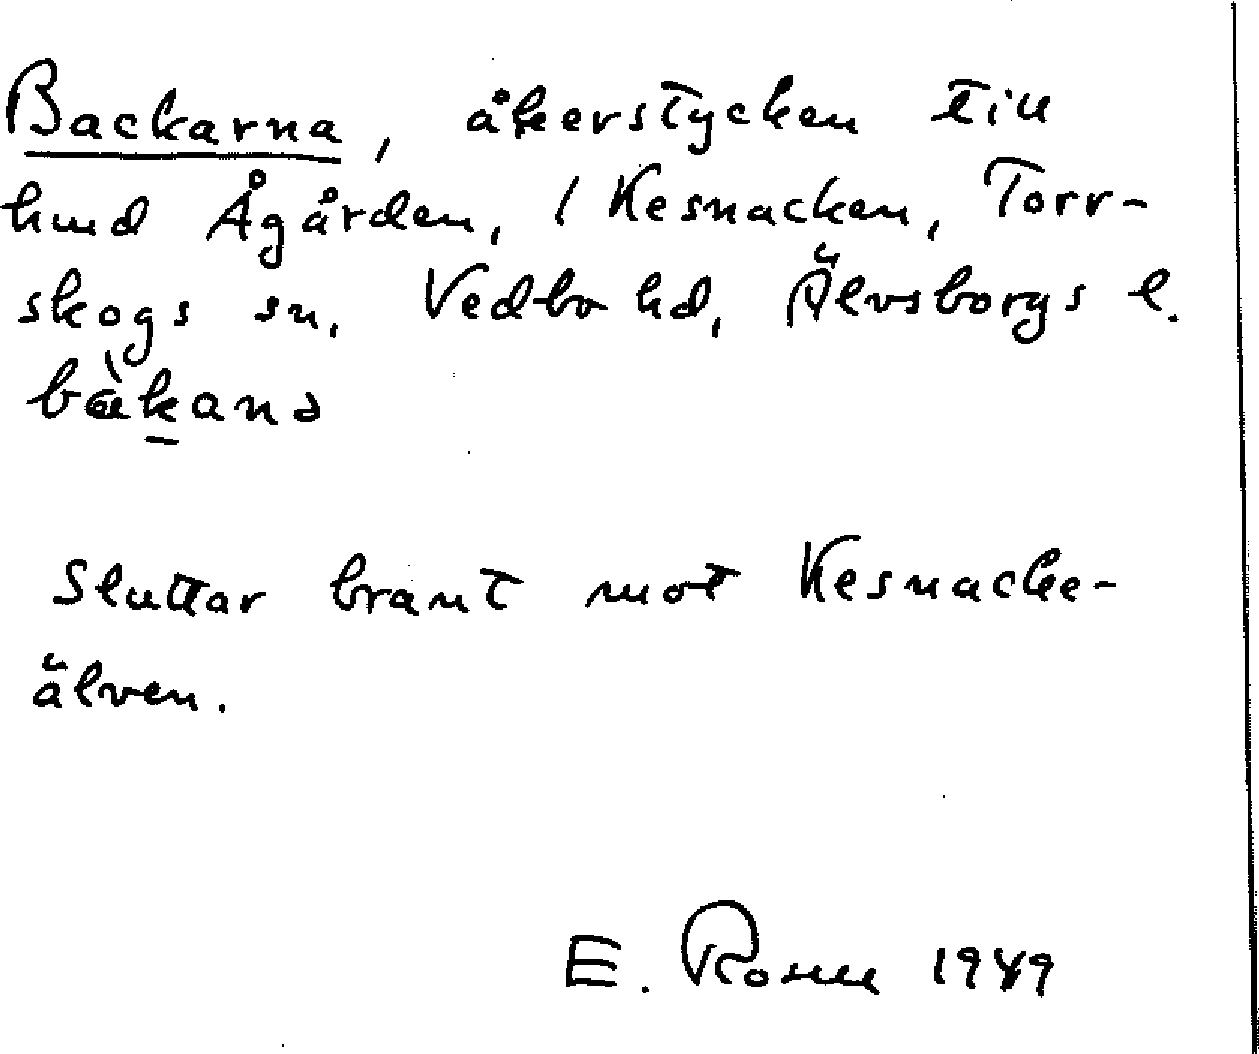 Backarna, åkerstycken till
hmd Ågården, 1 Kesnacken, Torr-
skogs sn, Vedbo hd, Älvsborgs l.
Sluttar brant mot Kesnacke-
älven.
E. 1949